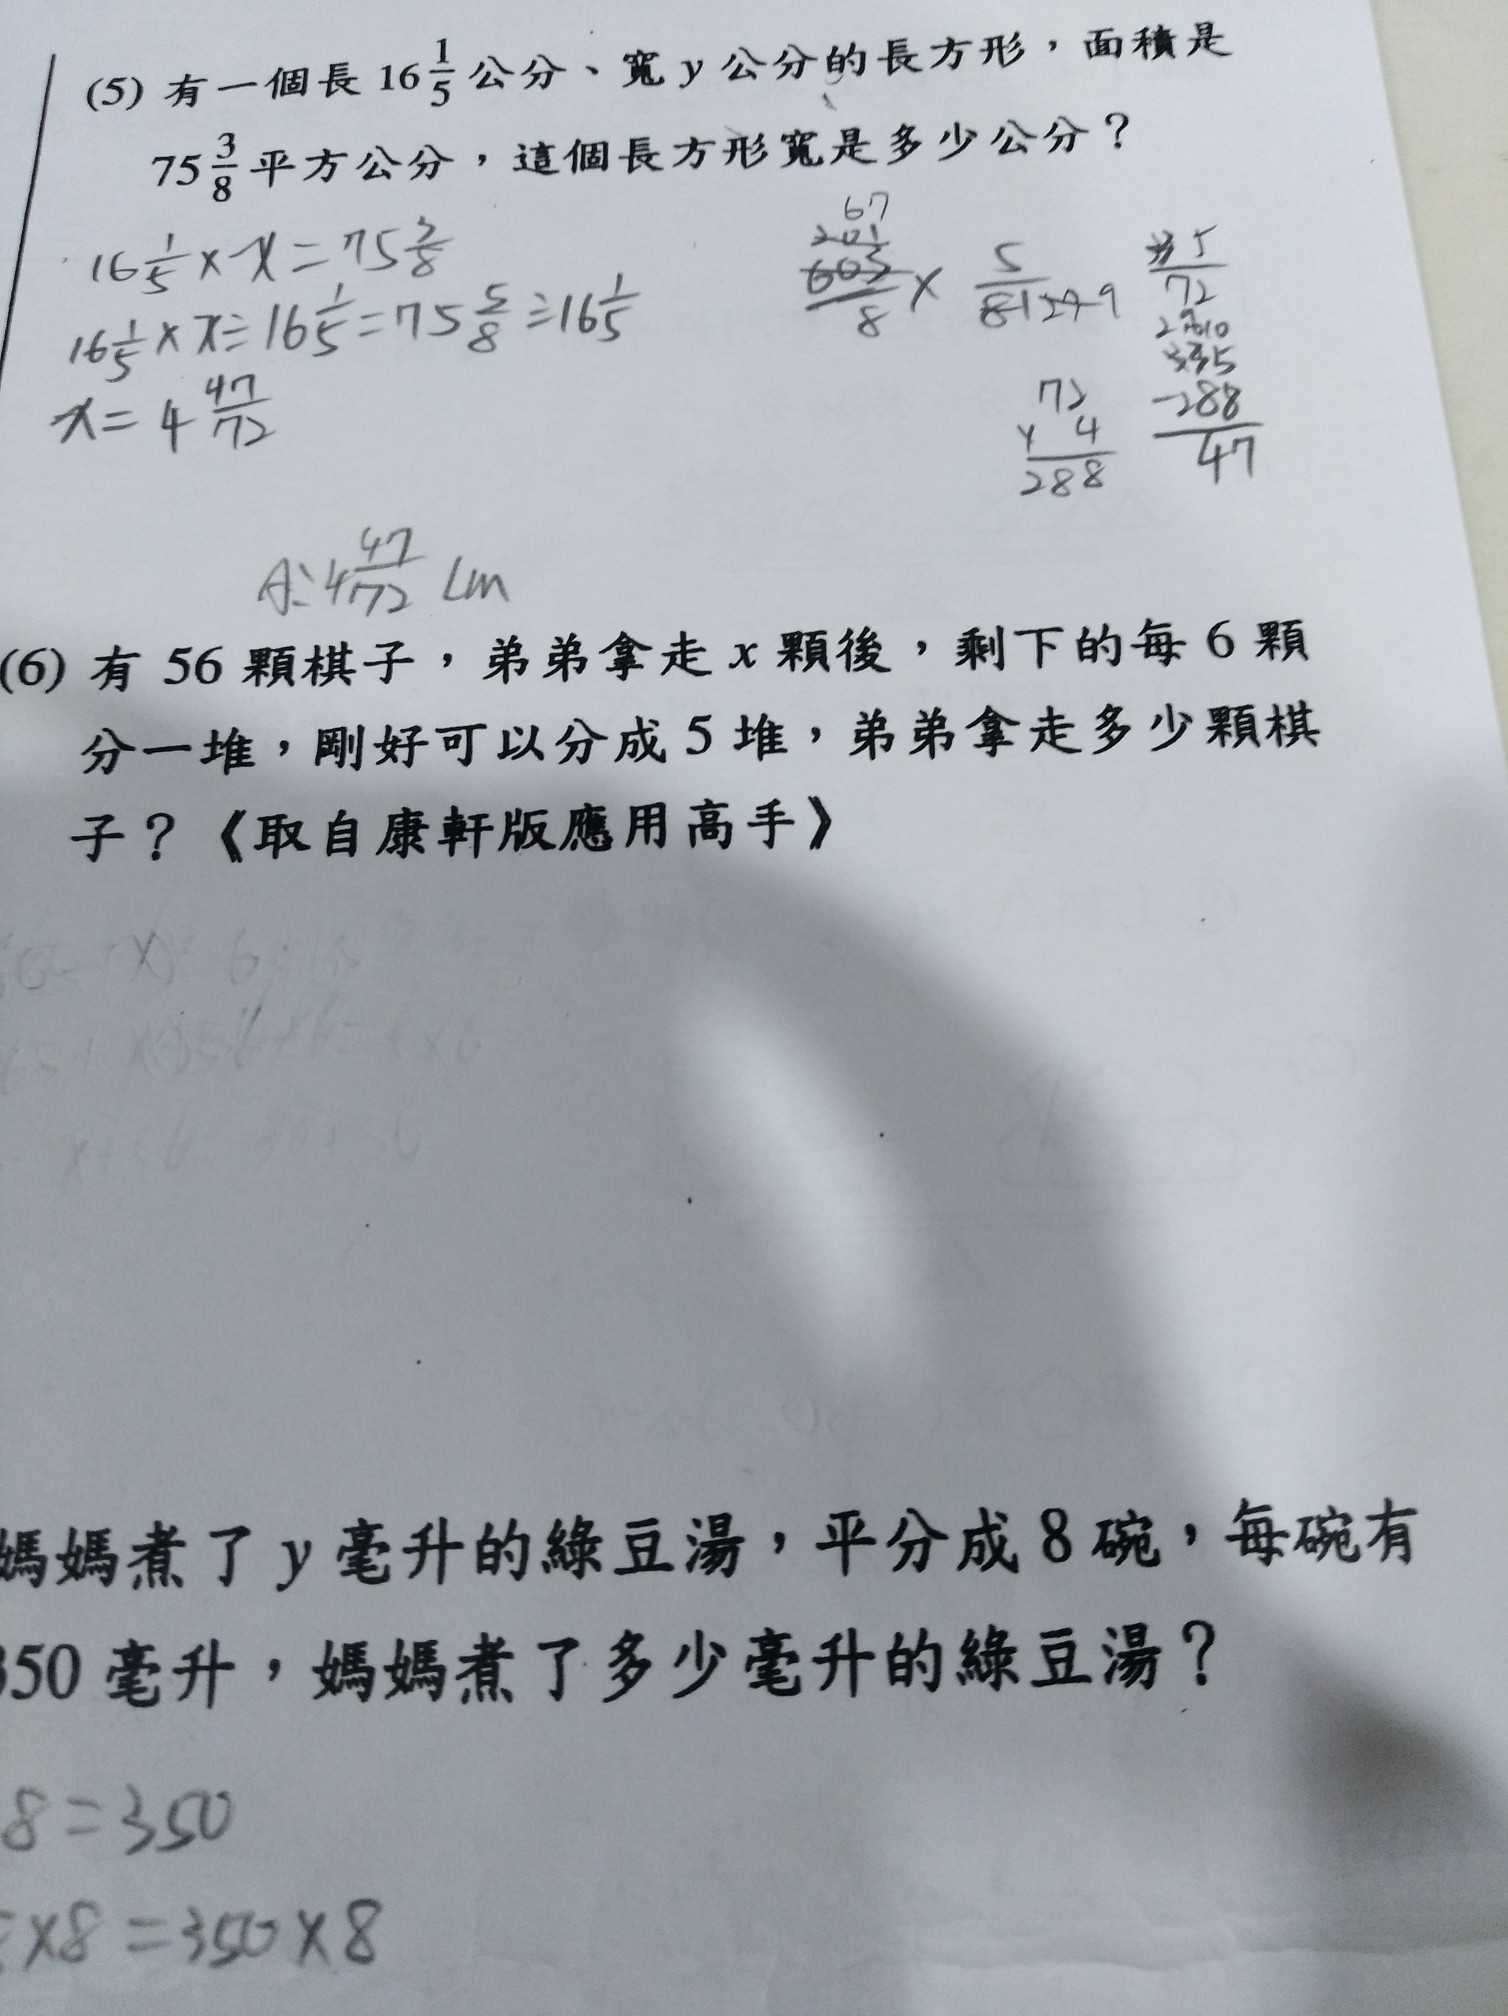 (5) 有一個長 16 1/5 公分、寬 y 公分的長方形，面積是
75 3/8 平方公分，這個長方形寬是多少公分？
16 1/5 × x = 75 3/8
16 1/5 × x ÷ 16 1/5 = 75 5/8 ÷ 16 1/5
x = 4 47/72
67
201
603/8 × 5/81
72
× 4
288
335
-288
47
A: 4 47/72 cm
(6) 有 56 顆棋子，弟弟拿走 x 顆後，剩下的每 6 顆
分一堆，剛好可以分成 5 堆，弟弟拿走多少顆棋
子？《取自康軒版應用高手》
媽媽煮了 y 毫升的綠豆湯，平分成 8 碗，每碗有
50 毫升，媽媽煮了多少毫升的綠豆湯？
8 = 350
×8 = 350×8